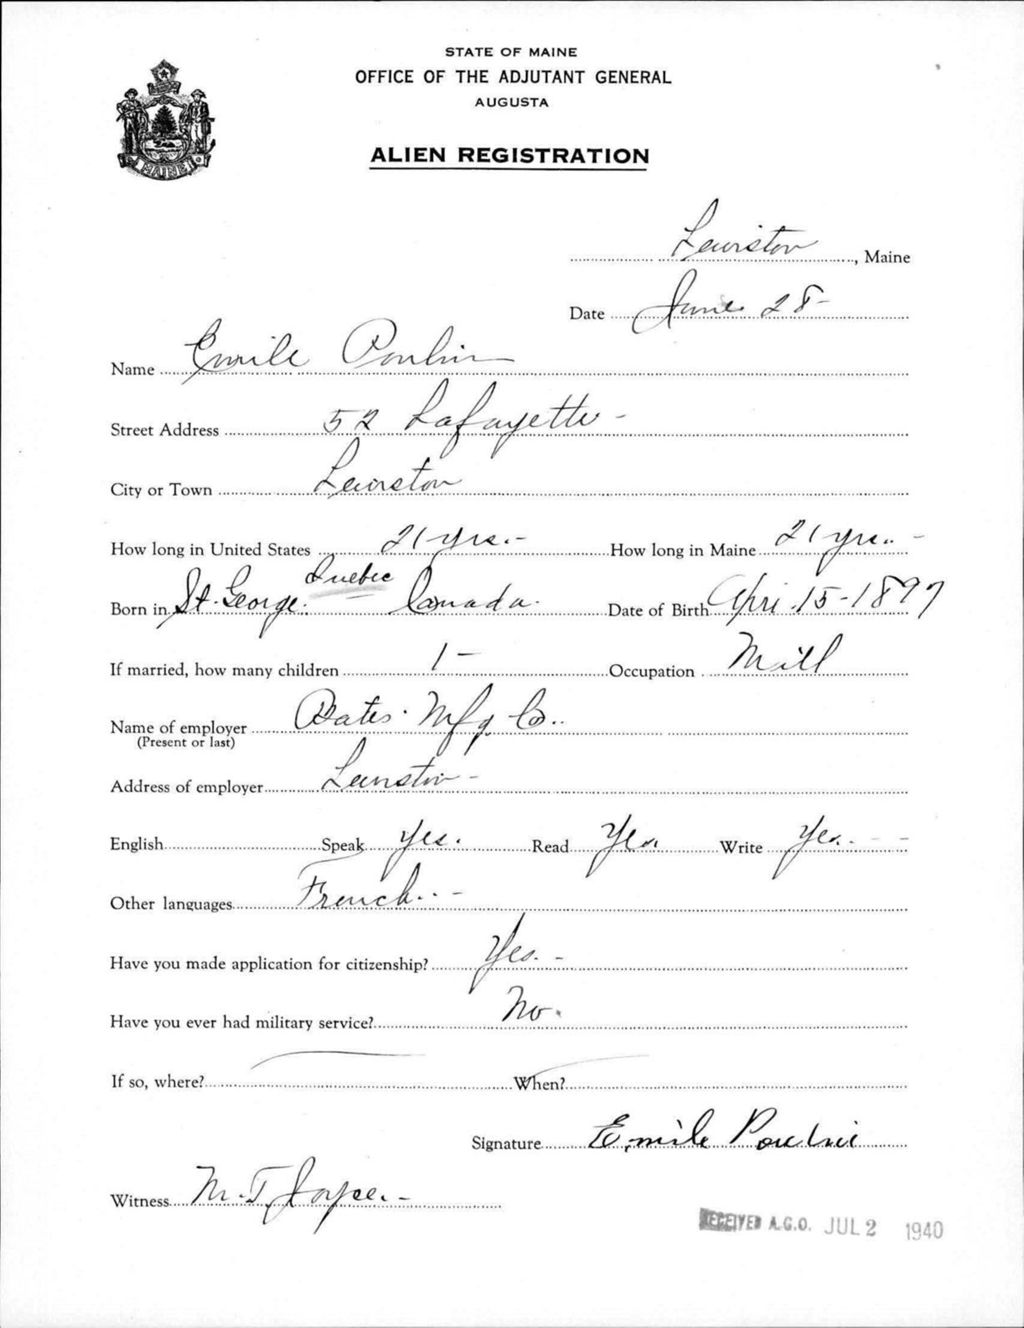 STATE OF MAINE
OFFICE OF THE ADJUTANT GENERAL
AUGUSTA
ALIEN REGISTRATION
MAINE
Lewiston, Maine
Date June 28-
Name Emile Poulin
Street Address 52 Lafayette -
City or Town Lewiston
How long in United States 21 yrs. - How long in Maine 21 yrs. -
Born in St. George. Quebec Canada. Date of Birth Apri. 15-1897
If married, how many children 1 - Occupation Mill
Name of employer Bates Mfg. Co..
(Present or last)
Address of employer Lewiston -
English Speak Yes. Read Yes, Write Yes. - -
Other languages French. -
Have you made application for citizenship? Yes. -
Have you ever had military service? No.
If so, where? When?
Signature Emile Poulin
Witness M. T. Joyce. -
RECEIVED A.G.O. JUL 2 1940